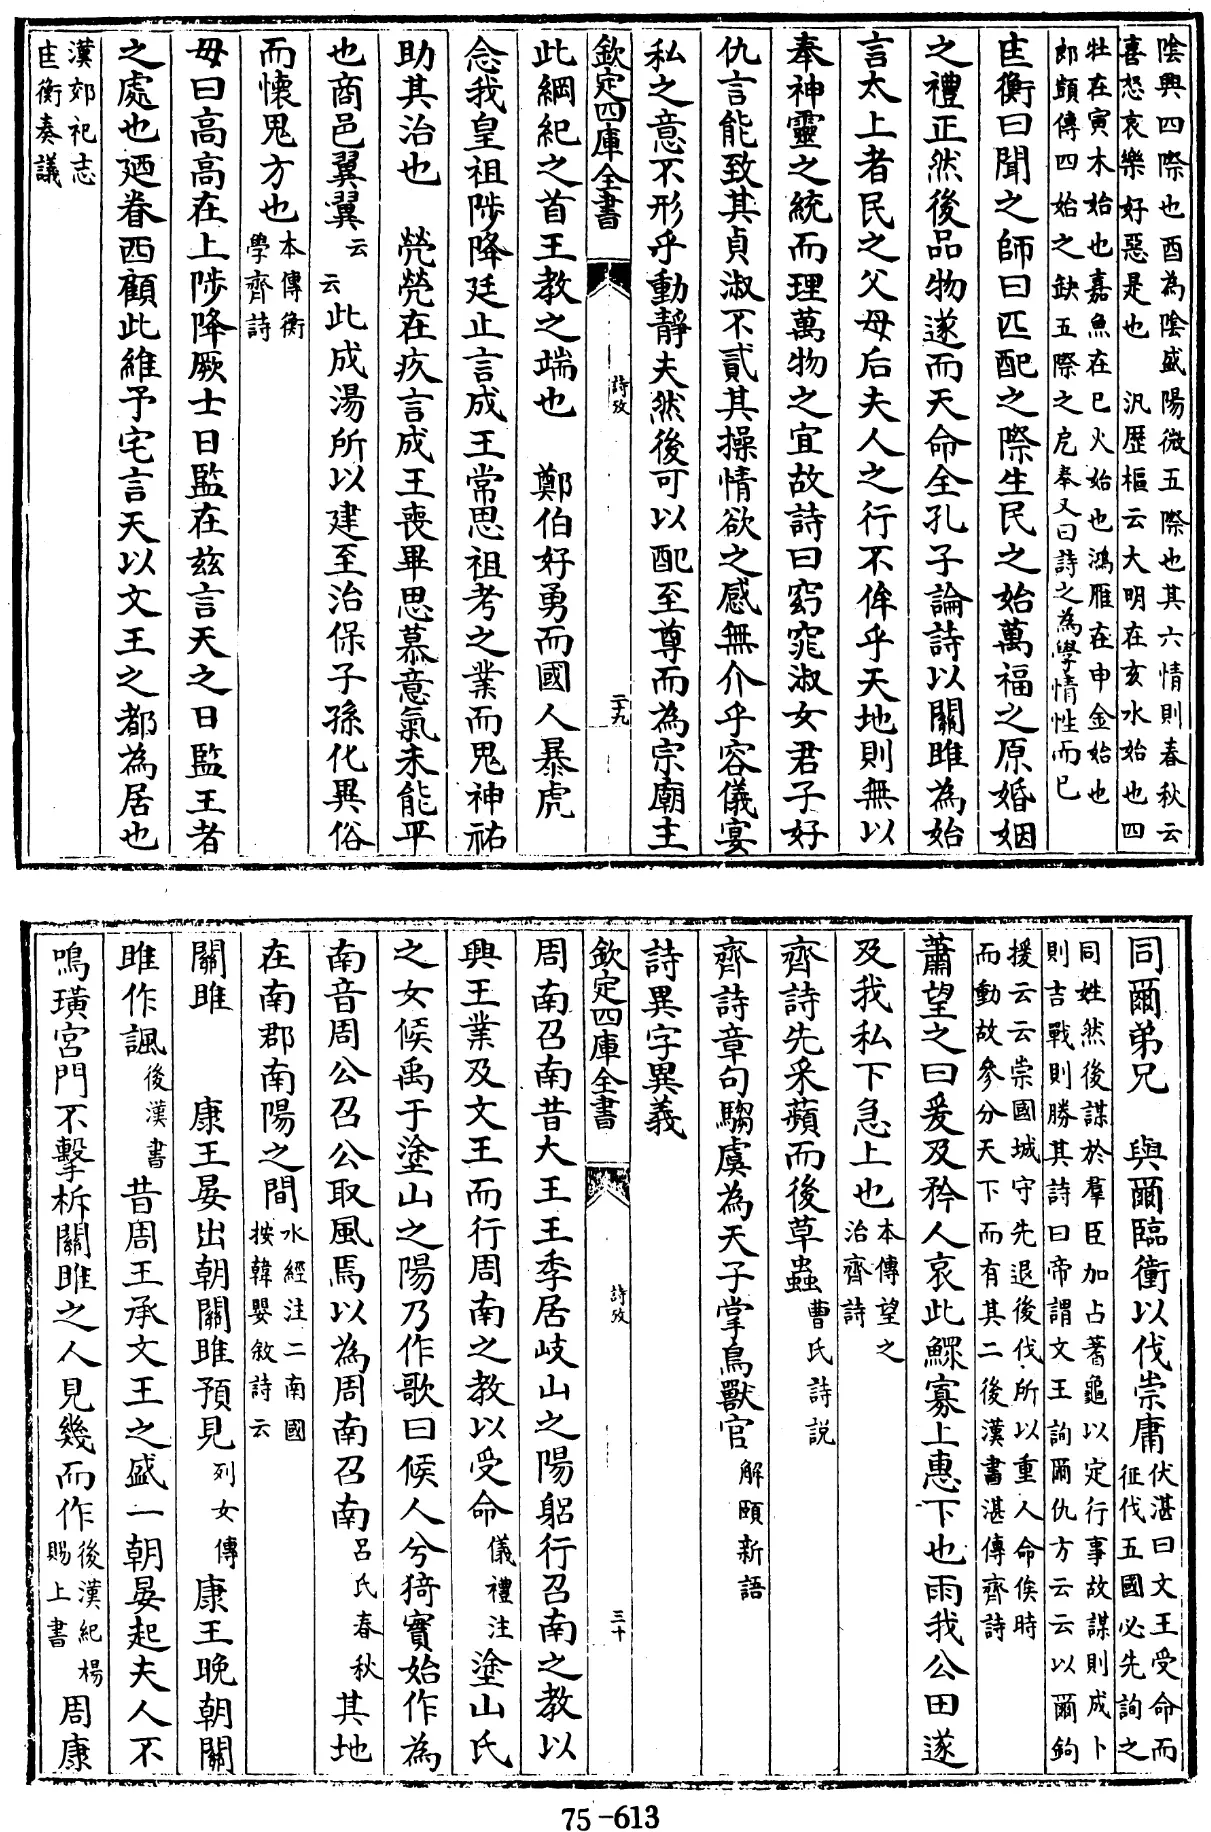 陰興四際也酉為陰盛陽微五際也其六情則春秋云
喜怒哀樂好惡是也　汎歷樞云大明在亥水始也四
牡在寅木始也嘉魚在巳火始也鴻雁在申金始也
郎顗傳四始之缺五際之戹奉又曰詩之為學情性而已
匡衡曰聞之師曰匹配之際生民之始萬福之原婚姻
之禮正然後品物遂而天命全孔子論詩以關雎為始
言太上者民之父母后夫人之行不侔乎天地則無以
奉神靈之統而理萬物之宜故詩曰窈窕淑女君子好
仇言能致其貞淑不貳其操情欲之感無介乎容儀宴
私之意不形乎動靜夫然後可以配至尊而為宗廟主
欽定四庫全書　詩攷　二十九
此綱紀之首王教之端也　鄭伯好勇而國人暴虎
念我皇祖陟降廷止言成王常思祖考之業而鬼神祐
助其治也　煢煢在疚言成王喪畢思慕意氣未能平
也商邑翼翼云云此成湯所以建至治保子孫化異俗
而懷鬼方也本傳衡學齊詩
毋曰高高在上陟降厥士日監在兹言天之日監王者
之處也廼眷西顧此維予宅言天以文王之都為居也
漢郊祀志
匡衡奏議
同爾弟兄　與爾臨衝以伐崇庸伏湛曰文王受命而征伐五國必先詢之
同姓然後謀於羣臣加占蓍龜以定行事故謀則成卜
則吉戰則勝其詩曰帝謂文王詢爾仇方云云以爾鉤
援云云崇國城守先退後伐所以重人命俟時
而動故參分天下而有其二後漢書湛傳齊詩
蕭望之曰爰及矜人哀此鰥寡上惠下也雨我公田遂
及我私下急上也本傳望之治齊詩
齊詩先采蘋而後草蟲曹氏詩説
齊詩章句騶虞為天子掌鳥獸官解頤新語
詩異字異義
欽定四庫全書　詩攷　三十
周南召南昔大王王季居岐山之陽躬行召南之教以
興王業及文王而行周南之教以受命儀禮注塗山氏
之女候禹于塗山之陽乃作歌曰候人兮猗實始作為
南音周公召公取風焉以為周南召南呂氏春秋其地
在南郡南陽之間水經注二南國按韓嬰敘詩云
關雎　康王晏出朝關雎預見列女傳康王晚朝關
雎作諷後漢書昔周王承文王之盛一朝晏起夫人不
鳴璜宮門不擊柝關雎之人見幾而作後漢紀楊賜上書周康
75-613